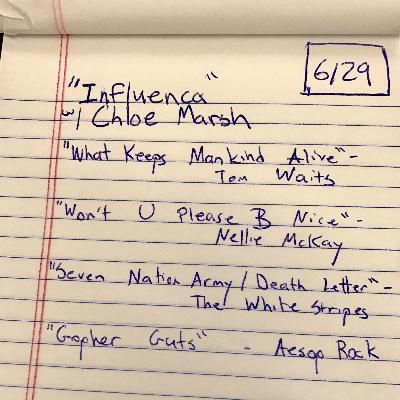 6/29
"Influenca"
w/ Chloe Marsh
"What Keeps Mankind Alive" -
Tom Waits
"Won't U Please B Nice" -
Nellie McKay
"Seven Nation Army / Death Letter" -
The White Stripes
"Gopher Guts" - Aesop Rock